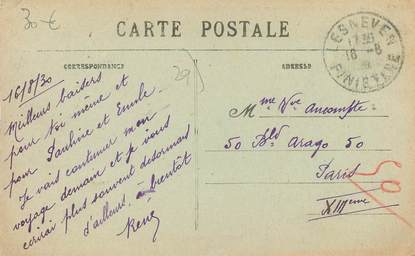 30 €
CARTE POSTALE
CORRESPONDANCE
ADRESSE
LESNEVEN
17 30
16 -8
30
FINISTERE
16/8/30
Meilleurs baisers
pour toi même et
pour Pauline et Emile.
Je vais continuer mon
voyage demain et je vous
écrirai plus souvent désormais
d'ailleurs, à bientôt
René
Mme Vve
50 Bld Arago 50
Paris
XIIIeme